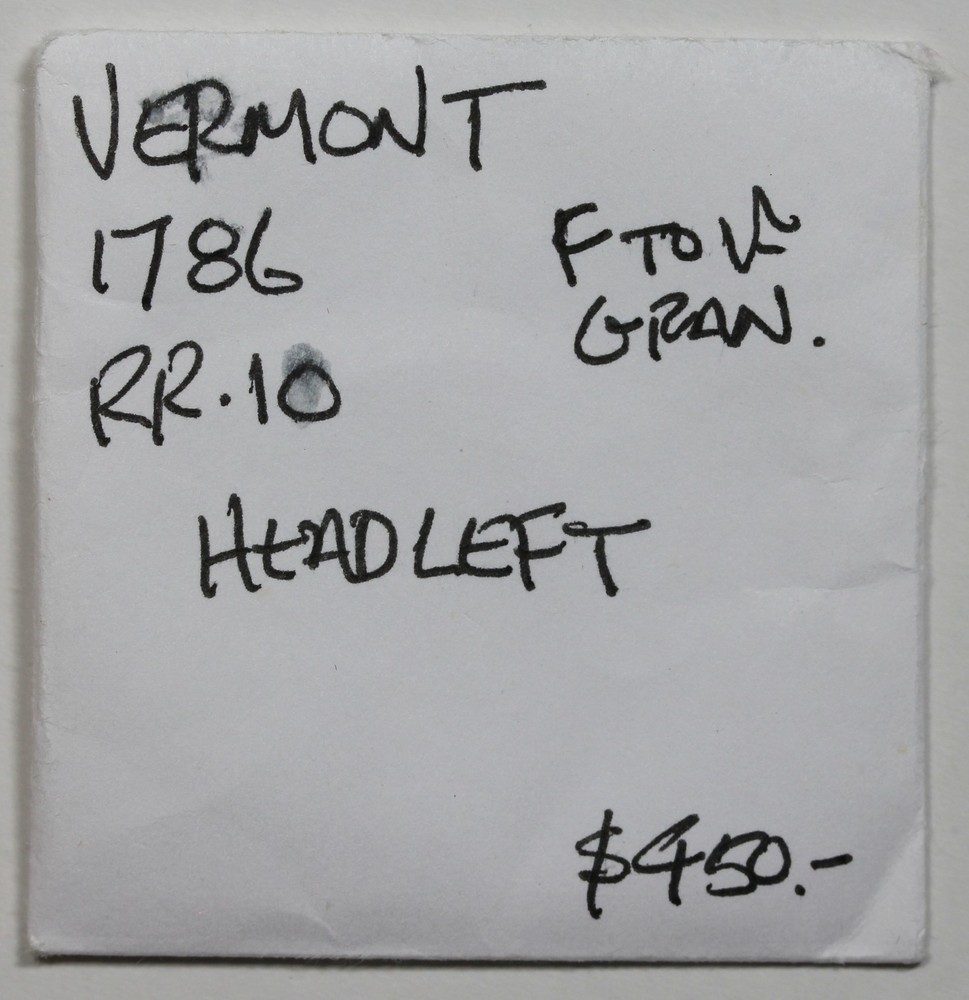 VERMONT
1786
F TO VF
GRAN.
RR.10
HEAD LEFT
$450.-